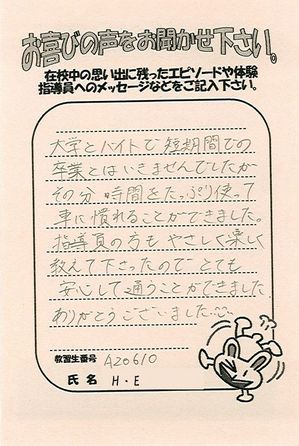 お喜びの声をお聞かせ下さい。
在校中の思い出に残ったエピソードや体験
指導員へのメッセージなどをご記入下さい。
大学とバイトで短期間での
卒業とはいきませんでしたが
その分時間をたっぷり使って
車に慣れることができました。
指導員の方もやさしく楽しく
教えて下さったのでとても
安心して通うことができました
ありがとうございました
教習生番号 A20610
氏名 H・E